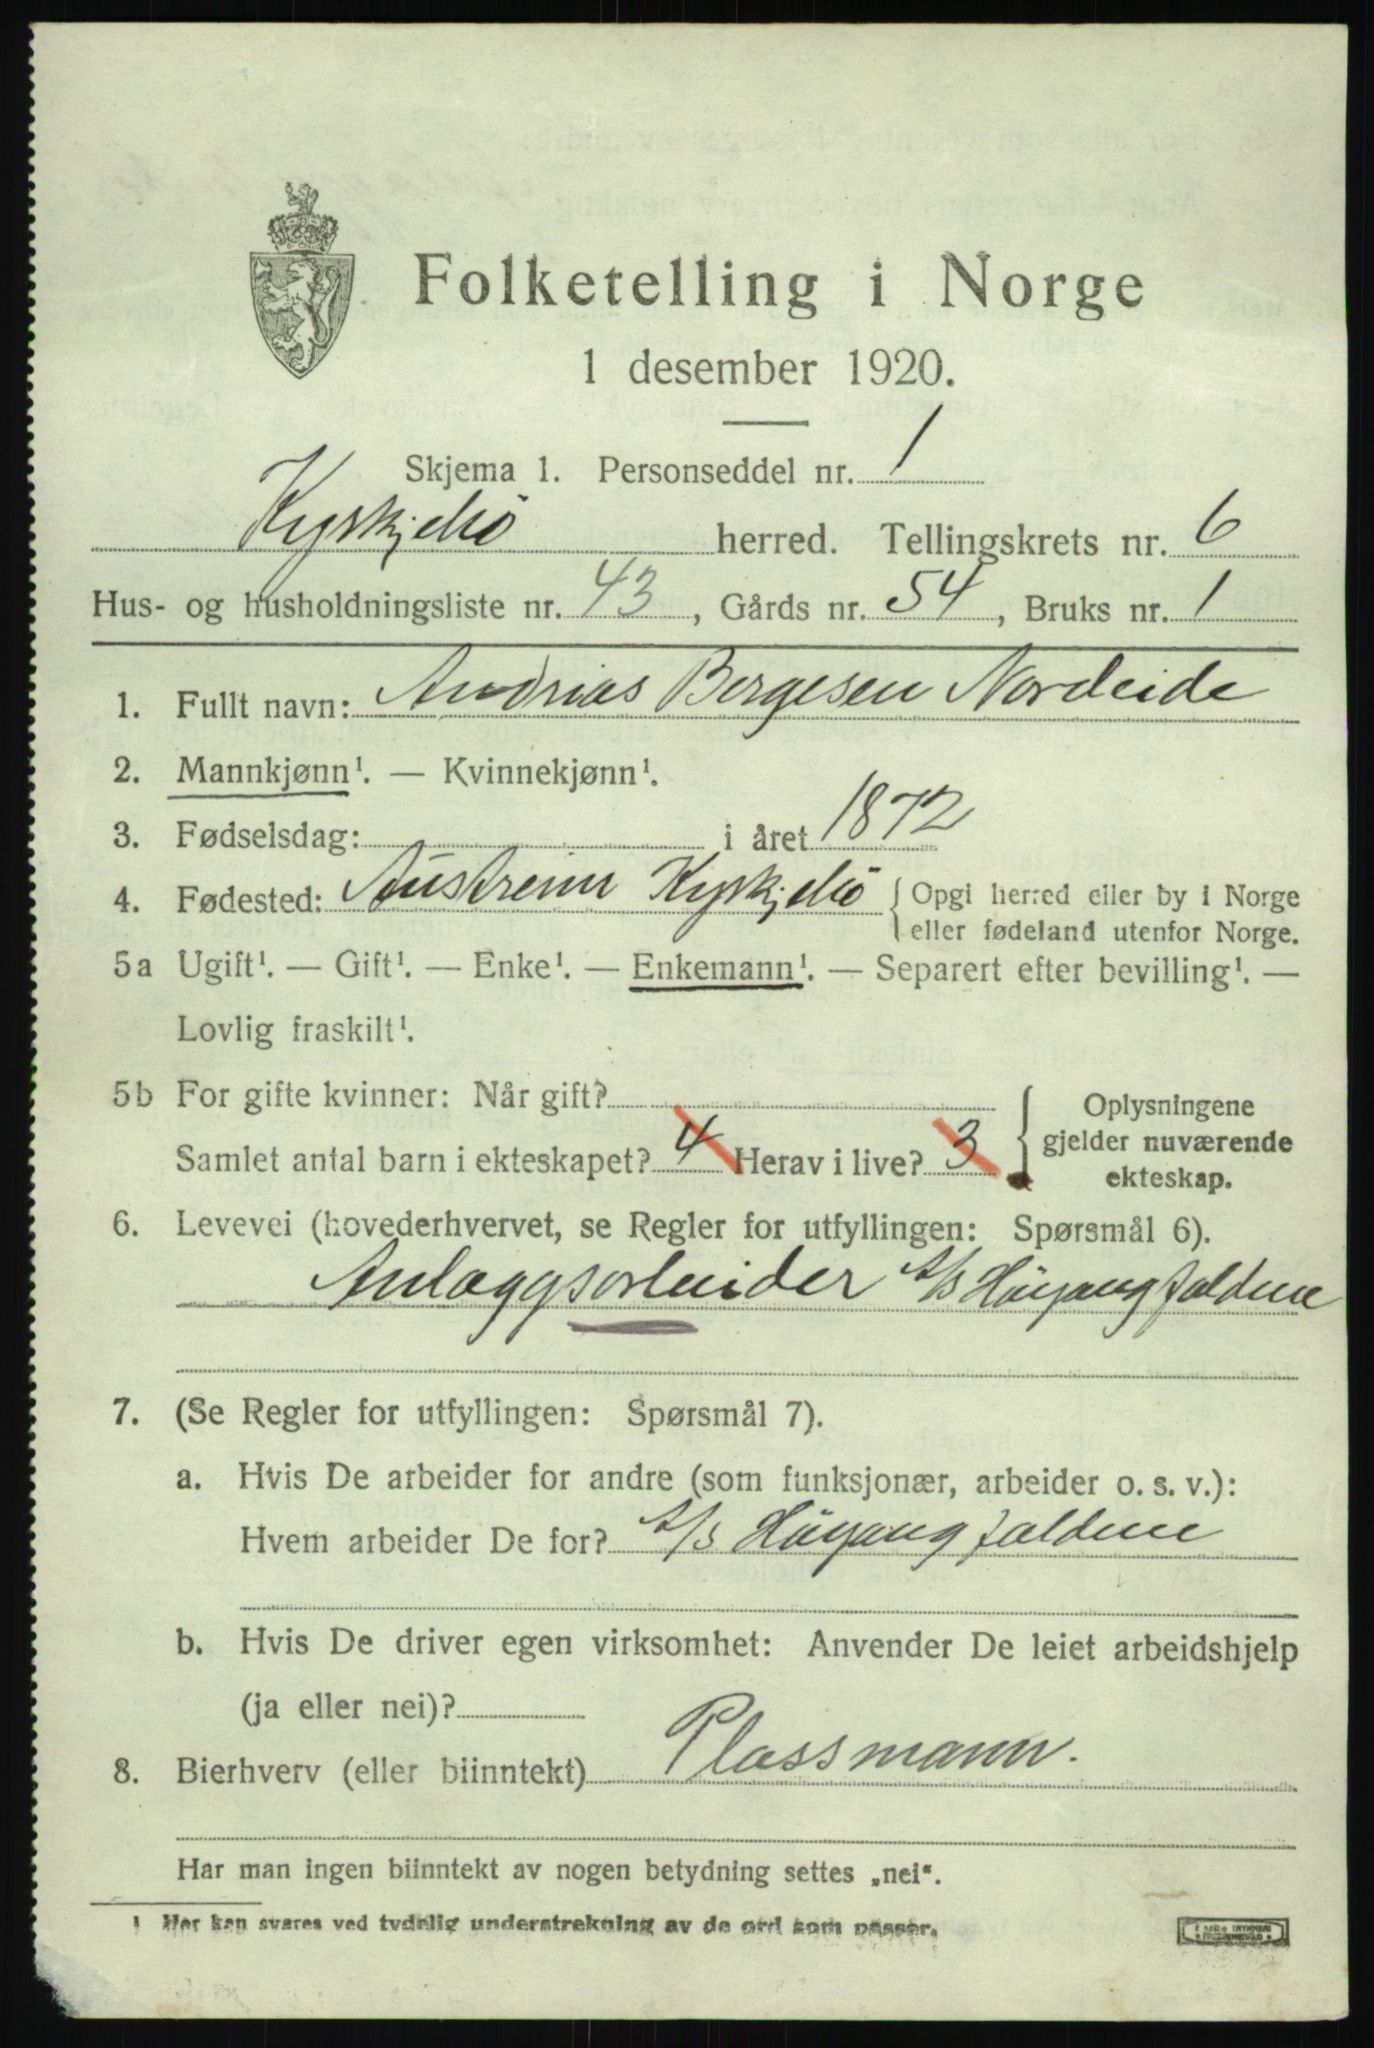 Folketelling i Norge
1 desember 1920.
Skjema 1. Personseddel nr. 1
Kyrkjebö herred. Tellingskrets nr. 6
Hus- og husholdningsliste nr. 43, Gårds nr. 54, Bruks nr. 1
1. Fullt navn: Andrias Børgesen Nordeide
2. Mannkjønn¹. — Kvinnekjønn¹.
3. Fødselsdag: i året 1872
4. Fødested: Austreim Kyrkjebö { Opgi herred eller by i Norge
eller fødeland utenfor Norge.
5a Ugift¹. — Gift¹. — Enke¹. — Enkemann¹. — Separert efter bevilling¹. —
Lovlig fraskilt¹.
5b For gifte kvinner: Når gift?
Samlet antal barn i ekteskapet? 4 Herav i live? 3
Oplysningene
gjelder nuværende
ekteskap.
6. Levevei (hovederhvervet, se Regler for utfyllingen: Spørsmål 6).
Anlæggsarbeider A/S Höyangfaldene
7. (Se Regler for utfyllingen: Spørsmål 7).
a. Hvis De arbeider for andre (som funksjonær, arbeider o. s. v.):
Hvem arbeider De for? A/S Höyangfaldene
b. Hvis De driver egen virksomhet: Anvender De leiet arbeidshjelp
(ja eller nei)?
8. Bierhverv (eller biinntekt) Plassmann.
Har man ingen biinntekt av nogen betydning settes „nei“.
1 Her kan svares ved tydelig understrekning av de ord som passer.